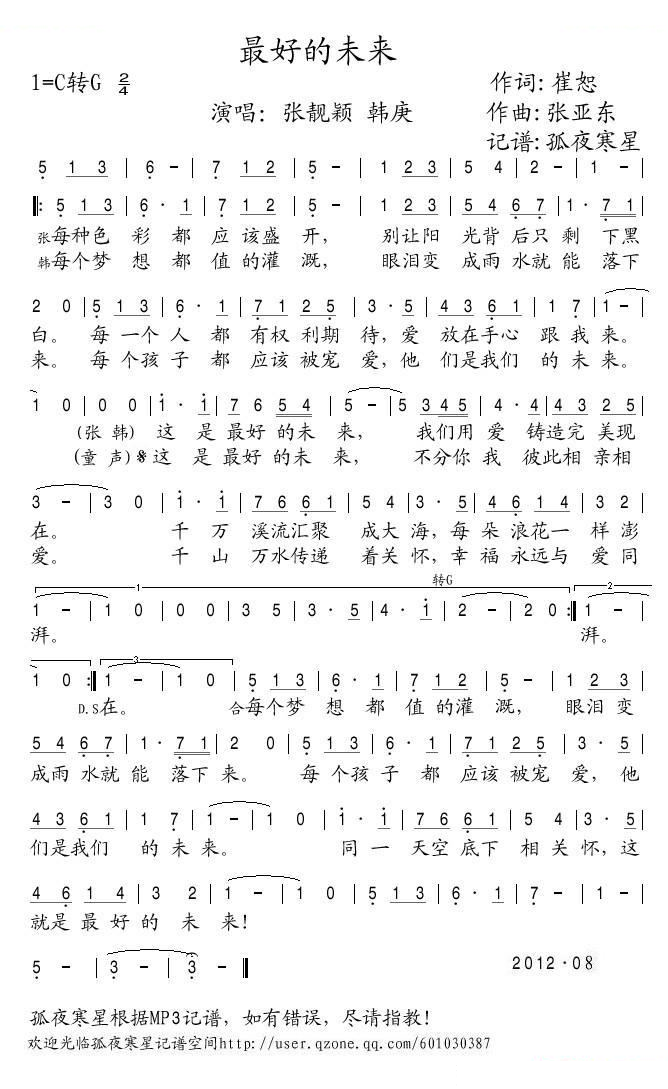 最好的未来
1=C转G 2/4 作词:崔恕
演唱: 张靓颖 韩庚 作曲:张亚东
记谱:孤夜寒星
5 1 3 | 6 - | 7 1 2 | 5 - | 1 2 3 | 5 4 | 2 - | 1 - |
‖: 5 1 3 | 6 · 1 | 7 1 2 | 5 - | 1 2 3 | 5 4 6 7 | 1 · 7 1 |
张每种色 彩 都 应 该盛 开, 别让阳 光背 后只 剩 下黑
韩每个梦 想 都 值 的灌 溉, 眼泪变 成雨 水就 能 落下
2 0 | 5 1 3 | 6 · 1 | 7 1 2 5 | 3 · 5 | 4 3 6 1 | 1 7 | 1 - |
白。 每 一个 人 都 有权 利期 待,爱 放在手心 跟 我 来。
来。 每 个孩 子 都 应该 被宠 爱,他 们是我们 的 未 来。
1 0 | 0 0 | 1 · 1 | 7 6 5 4 | 5 - | 5 3 4 5 | 4 · 4 | 4 3 2 5 |
(张 韩) 这 是 最好 的未 来, 我们用 爱 铸造完 美现
(童 声)𝄋这 是 最好 的未 来, 不分你 我 彼此相 亲相
3 - | 3 0 | 1 · 1 | 7 6 6 1 | 5 4 | 3 · 5 | 4 6 1 4 | 3 2 |
在。 千 万 溪流汇聚 成大 海,每 朵 浪花一 样 澎
爱。 千 山 万水传递 着关 怀,幸 福 永远与 爱 同
1 转G 2
1 - | 1 0 | 0 0 | 3 5 | 3 · 5 | 4 · 1 | 2 - | 2 0 :‖ 1 - |
湃。 湃。
3
1 0 :‖ 1 - | 1 0 | 5 1 3 | 6 · 1 | 7 1 2 | 5 - | 1 2 3 |
D.S在。 合每个梦 想 都 值 的灌 溉, 眼泪 变
5 4 6 7 | 1 · 7 1 | 2 0 | 5 1 3 | 6 · 1 | 7 1 2 5 | 3 · 5 |
成雨 水就 能 落下 来。 每 个孩 子 都 应该 被宠 爱,他
4 3 6 1 | 1 7 | 1 - | 1 0 | 1 · 1 | 7 6 6 1 | 5 4 | 3 · 5 |
们是我们 的 未 来。 同 一 天空 底下 相 关怀,这
4 6 1 4 | 3 2 | 1 - | 1 0 | 5 1 3 | 6 · 1 | 7 - | 1 - |
就是 最 好的 未 来!
5 - | 3 - | 3 - ‖ 2012·08
孤夜寒星根据MP3记谱, 如有错误, 尽请指教!
欢迎光临孤夜寒星记谱空间http://user.qzone.qq.com/601030387